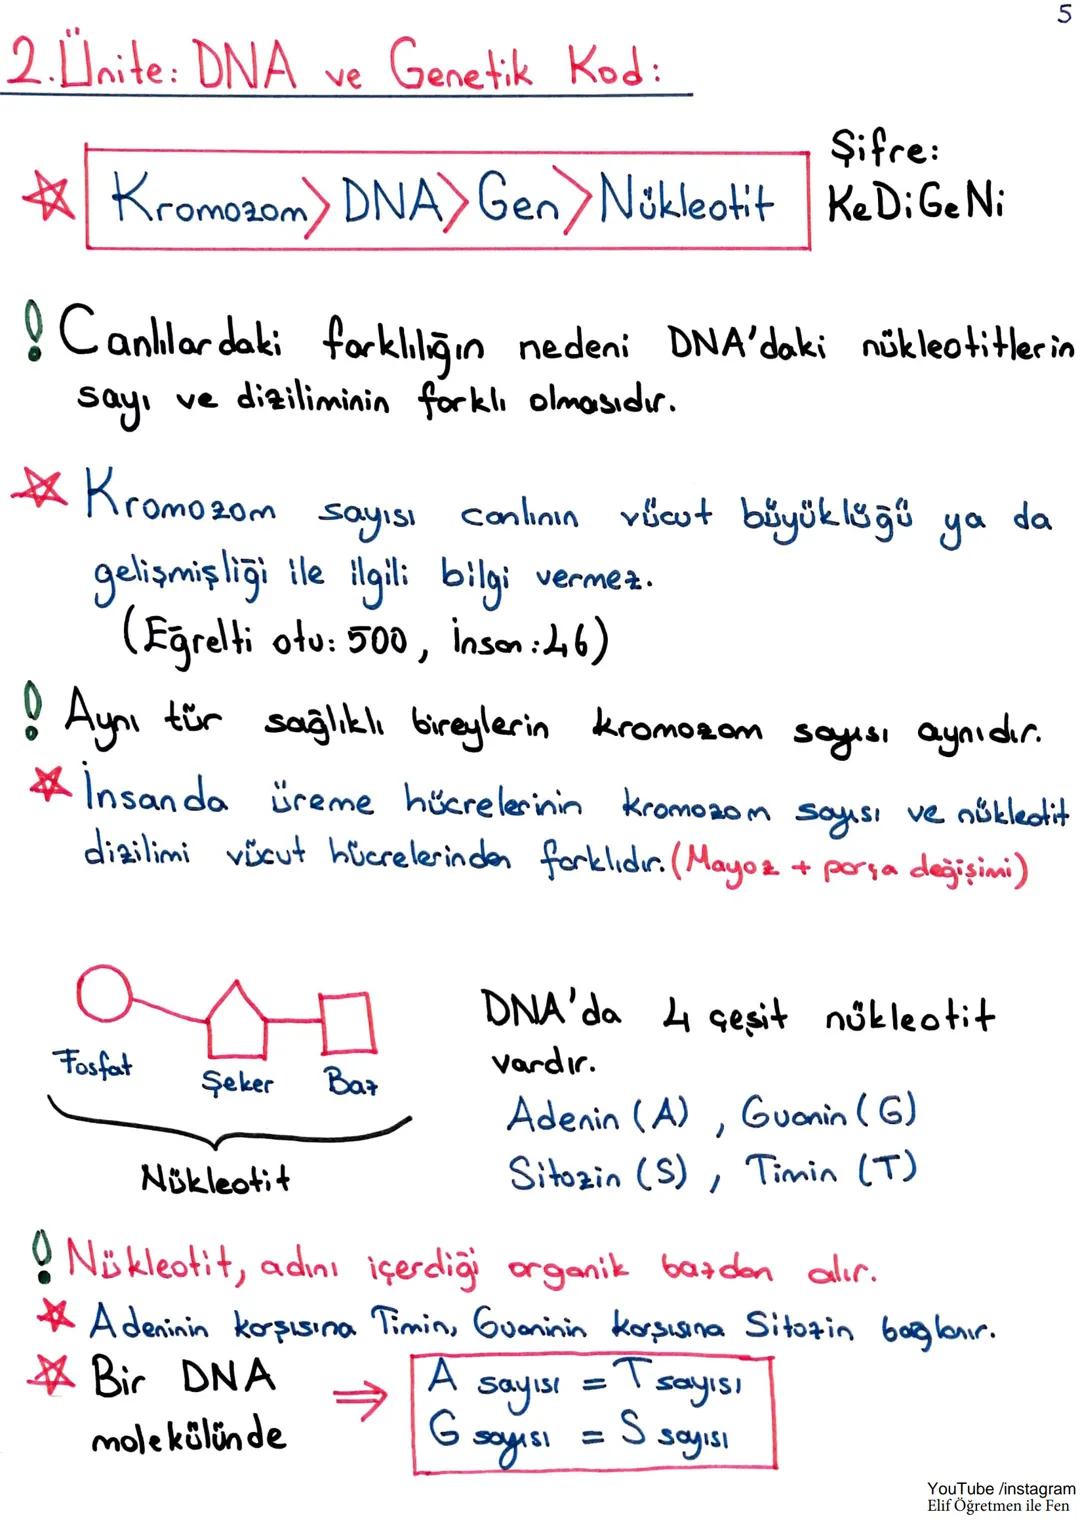 5
2.Ünite: DNA ve Genetik Kod:
Kromozom > DNA > Gen > Nükleotit
Şifre:
KeDiGeNi
! Canlılardaki farklılığın nedeni DNA'daki nükleotitlerin
sayı ve diziliminin farklı olmasıdır.
Kromozom sayısı canlının vücut büyüklüğü ya da
gelişmişliği ile ilgili bilgi vermez.
(Eğrelti otu: 500, İnsan: 46)
! Aynı tür sağlıklı bireylerin kromozom sayısı aynıdır.
İnsanda üreme hücrelerinin kromozom sayısı ve nükleotit
dizilimi vücut hücrelerinden farklıdır. (Mayoz + parça değişimi)
Fosfat Şeker Baz
Nükleotit
DNA'da 4 çeşit nükleotit
vardır.
Adenin (A), Guanin (G)
Sitozin (S), Timin (T)
! Nükleotit, adını içerdiği organik bazdan alır.
Adeninin karşısına Timin, Guaninin karşısına Sitozin bağlanır.
Bir DNA
molekülünde
⇒
A sayısı = T sayısı
G sayısı = S sayısı
YouTube /instagram
Elif Öğretmen ile Fen